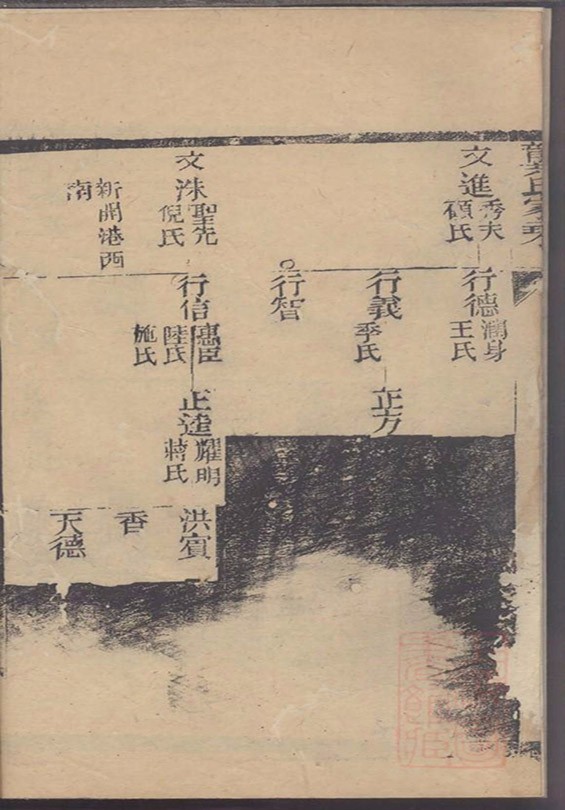 文進 秀夫
碩氏
行德 潤身
王氏
行義
季氏
正方
行智
文洙 聖先
倪氏
新開港西
南
行信 憲臣
陸氏
施氏
正達 耀明
蔣氏
洪賓
香
天德